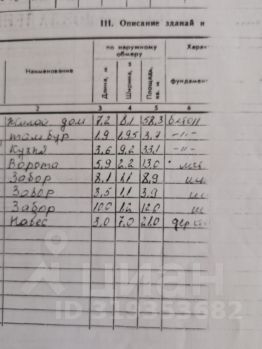 III. Описание зданий и
по наружному обмеру
Хара
Наименование
Длина, м
Ширина, м
Площадь, кв. м
фундамент
2 3 4 5 6
Жилой дом 7,2 8,1 58,3 бетон
тамбур 1,9 1,95 3,7 -"-
Кухня 3,6 9,2 33,1 -"-
Ворота 5,9 2,2 13,0
Забор 8,1 1,1 8,9
Забор 3,5 1,1 3,9
Забор 10,0 1,2 12,0
Навес 3,0 7,0 21,0
ЦИАН
ID 319353682